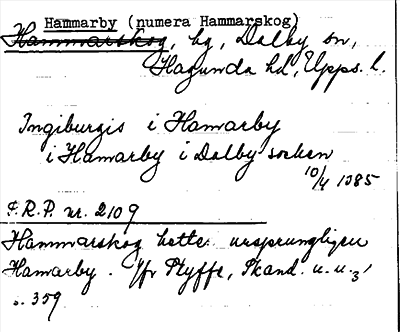 Hammarby (numera Hammarskog)
Hammarskog, bg, Dalby sn,
Hagunda hd, Upps. l.
Ingiburgis i Hamarby
i Hamarby i Dalby socken
10/4 1385
F.R.P. nr. 2109
Hammarskog hette ursprungligen
Hamarby. Jfr Styffe, Skand. u. u.3,
s. 359